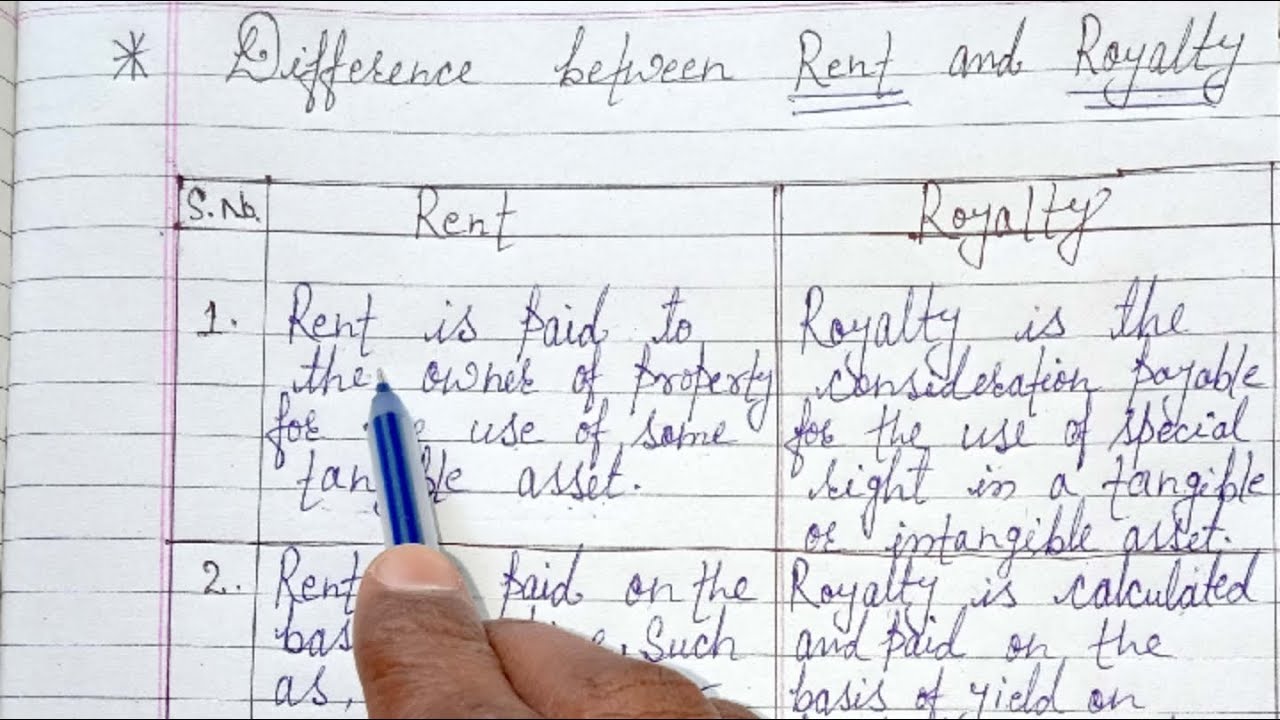 * Difference between Rent and Royalty
S.No. Rent Royalty
1. Rent is paid to Royalty is the
the owner of property consideration payable
for use of some for the use of special
asset. right in a tangible
or intangible asset.
2. Rent paid on the Royalty is calculated
Such and paid on the
as, basis of yield on